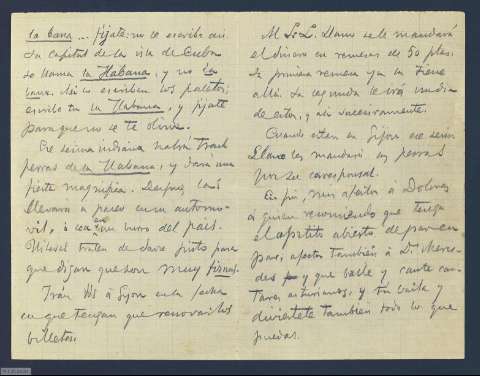 la bana ... fijate: no se escribe asi.
La capital de la isla de Cuba
se llama la Habana, y no la
bana. Asi lo escriben los paletos;
escribe tu la Habana, y fijate
para que no se te olvide.
Ese señor indiano habrá traido
perras de la Habana, y dará una
fiesta magnifica. Despues, las
llevara a paseo en su automo-
vil, ó con un burro del pais.
Ustedes traten de darse pisto para
que digan que son muy finas.
Irán Vds á Gijon en la fecha
en que tengan que renovar los
billetes.
Al Sr. L. Llano se le mandará
el dinero en remesas de 50 ptas.
La primera remesa ya la tiene
allá. La segunda le irá un dia
de estos, y asi sucesivamente.
Cuando esten en Gijon ese señor
Llano les mandará las perras
por su corresponsal.
En fin, mis afectos á Dolores
á quien recomiendo que tenga
el apetito abierto de par en
par; afectos también á Dª Merce-
des y que baile y cante can-
tares asturianos, y tu baila y
diviertete también todo lo que
puedas.